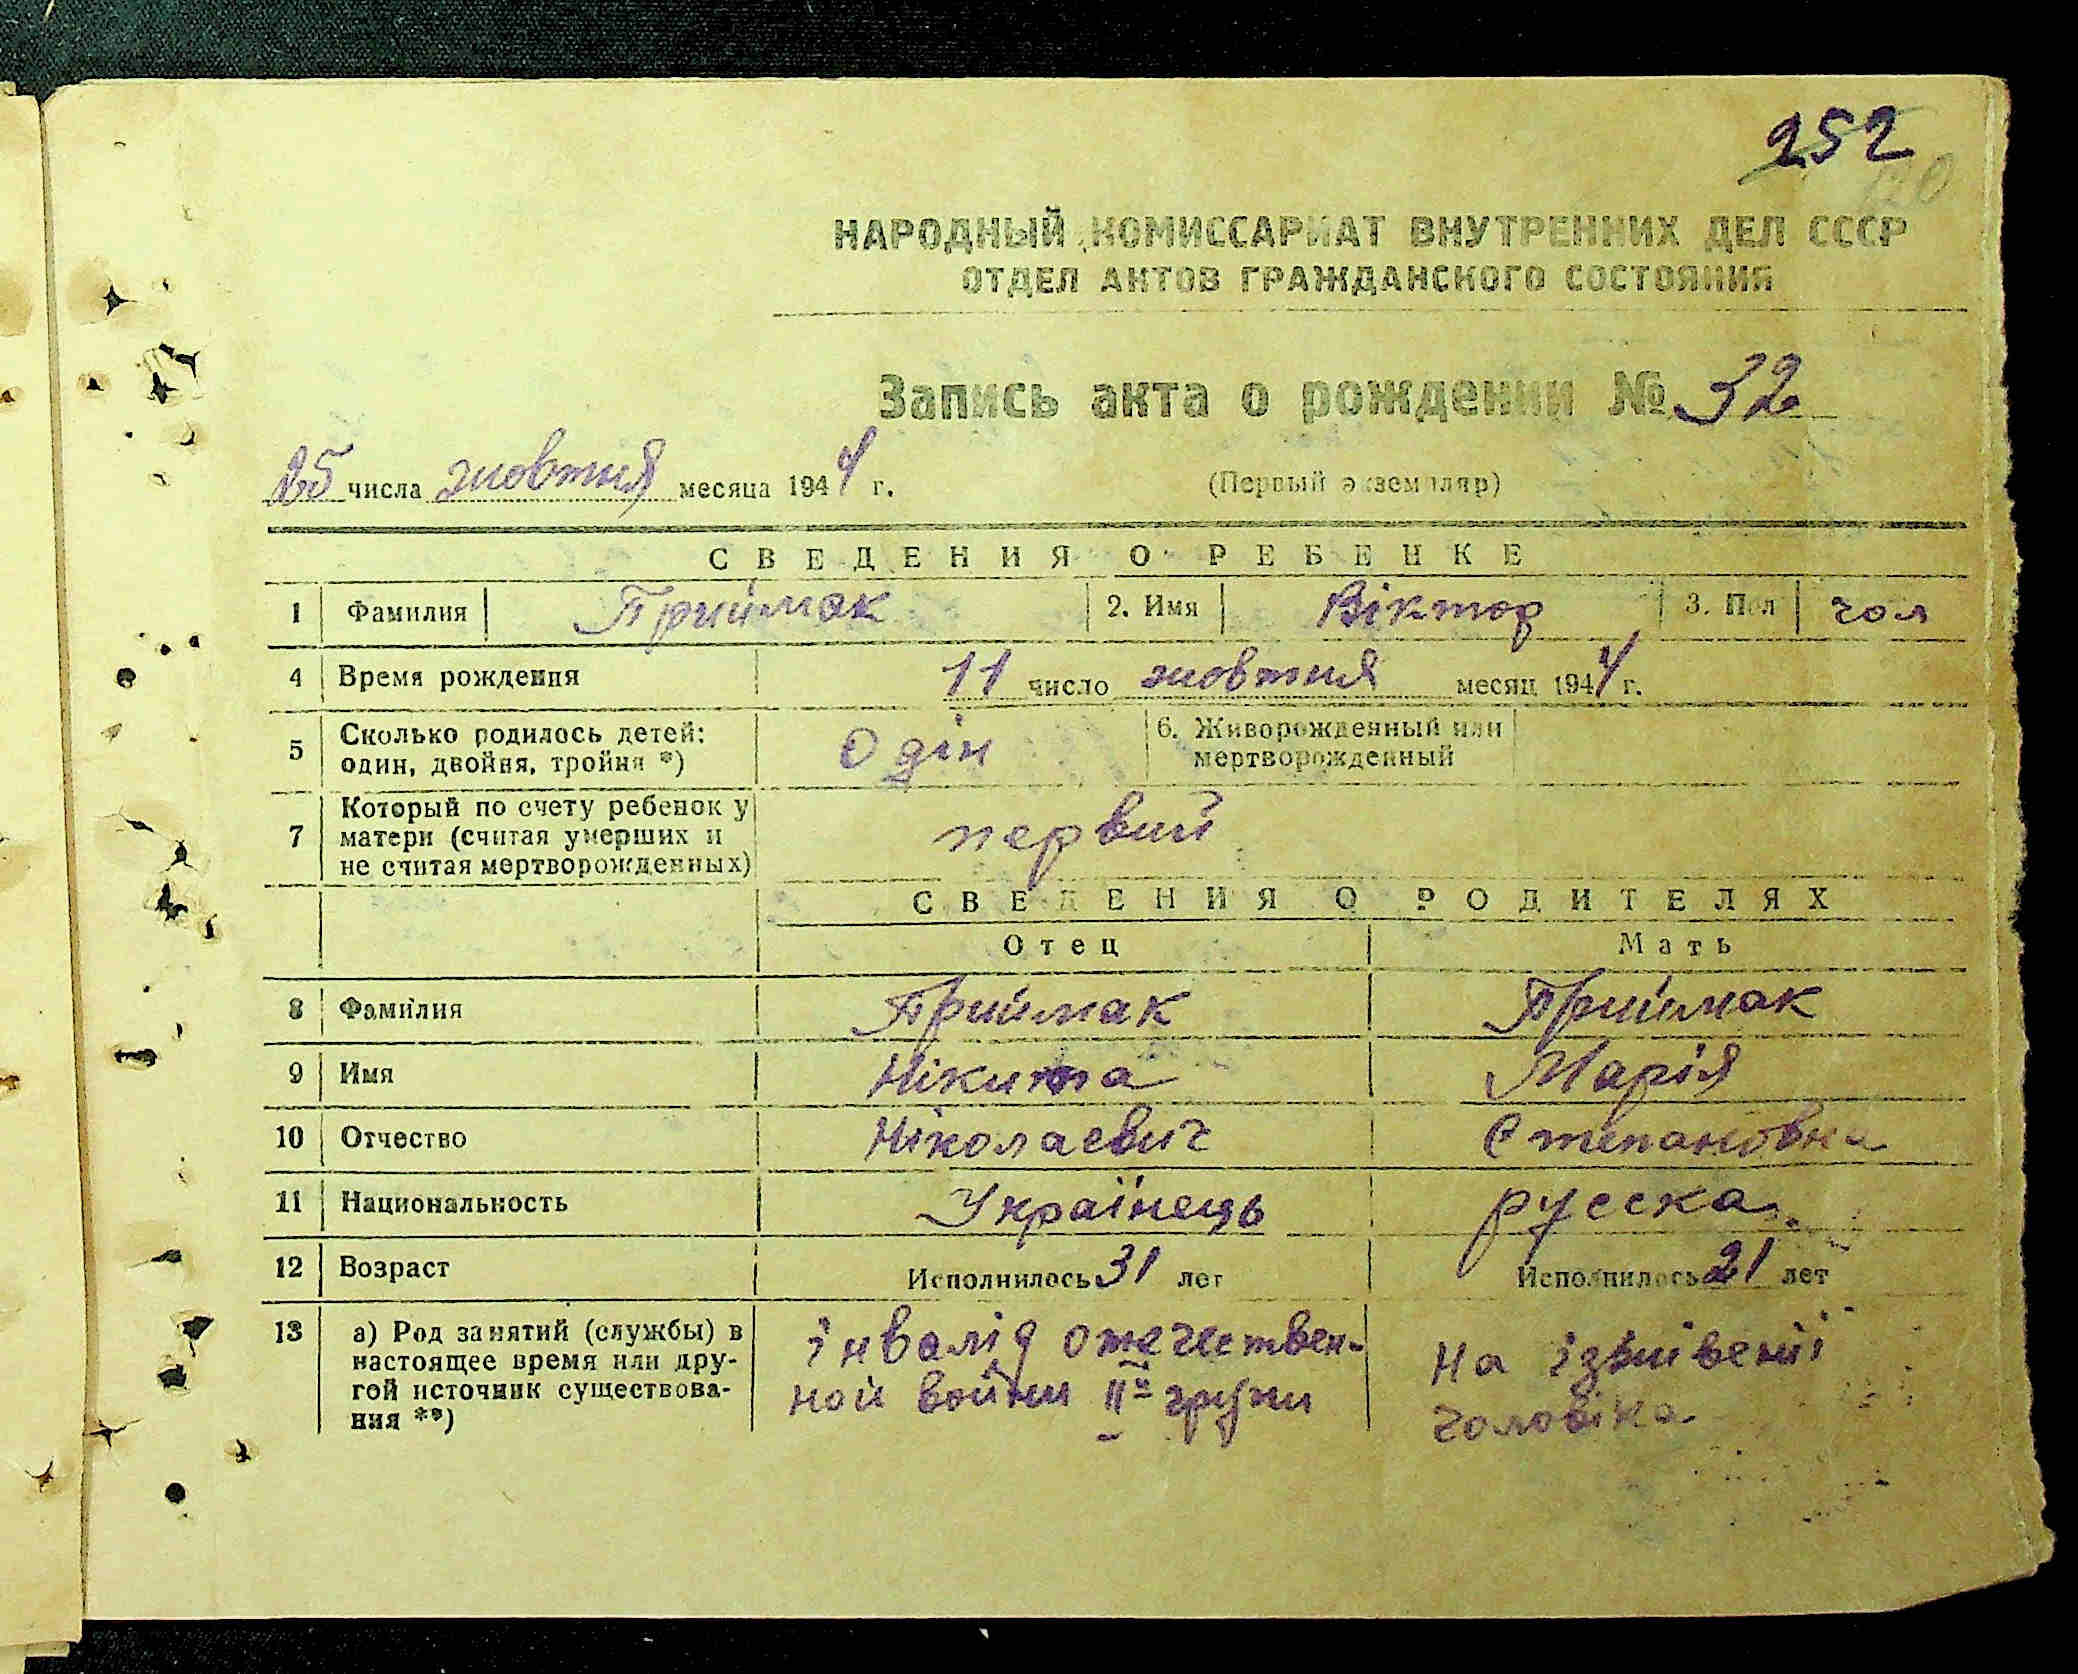 252
НАРОДНЫЙ КОМИССАРИАТ ВНУТРЕННИХ ДЕЛ СССР
ОТДЕЛ АКТОВ ГРАЖДАНСКОГО СОСТОЯНИЯ
Запись акта о рождении № 32
25 числа жовтня месяца 1944 г. (Первый экземпляр)
СВЕДЕНИЯ О РЕБЕНКЕ
1 Фамилия Приймак 2. Имя Віктор 3. Пол чол
4 Время рождения 11 число жовтня месяц 1944 г.
5 Сколько родилось детей: один, двойня, тройня *) Одін 6. Живорожденный или мертворожденный
7 Который по счету ребенок у матери (считая умерших и не считая мертворожденных) первий
СВЕДЕНИЯ О РОДИТЕЛЯХ
Отец Мать
8 Фамилия Приймак Приймак
9 Имя Нікита Марія
10 Отчество Ніколаевич Степановна
11 Национальность Українець русска
12 Возраст Исполнилось 31 лет Исполнилось 21 лет
13 а) Род занятий (службы) в настоящее время или другой источник существования **) інвалід отечествен-
ной войни ІІ й групи
на
чоловіка